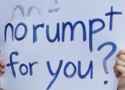 no rumpt
for you?